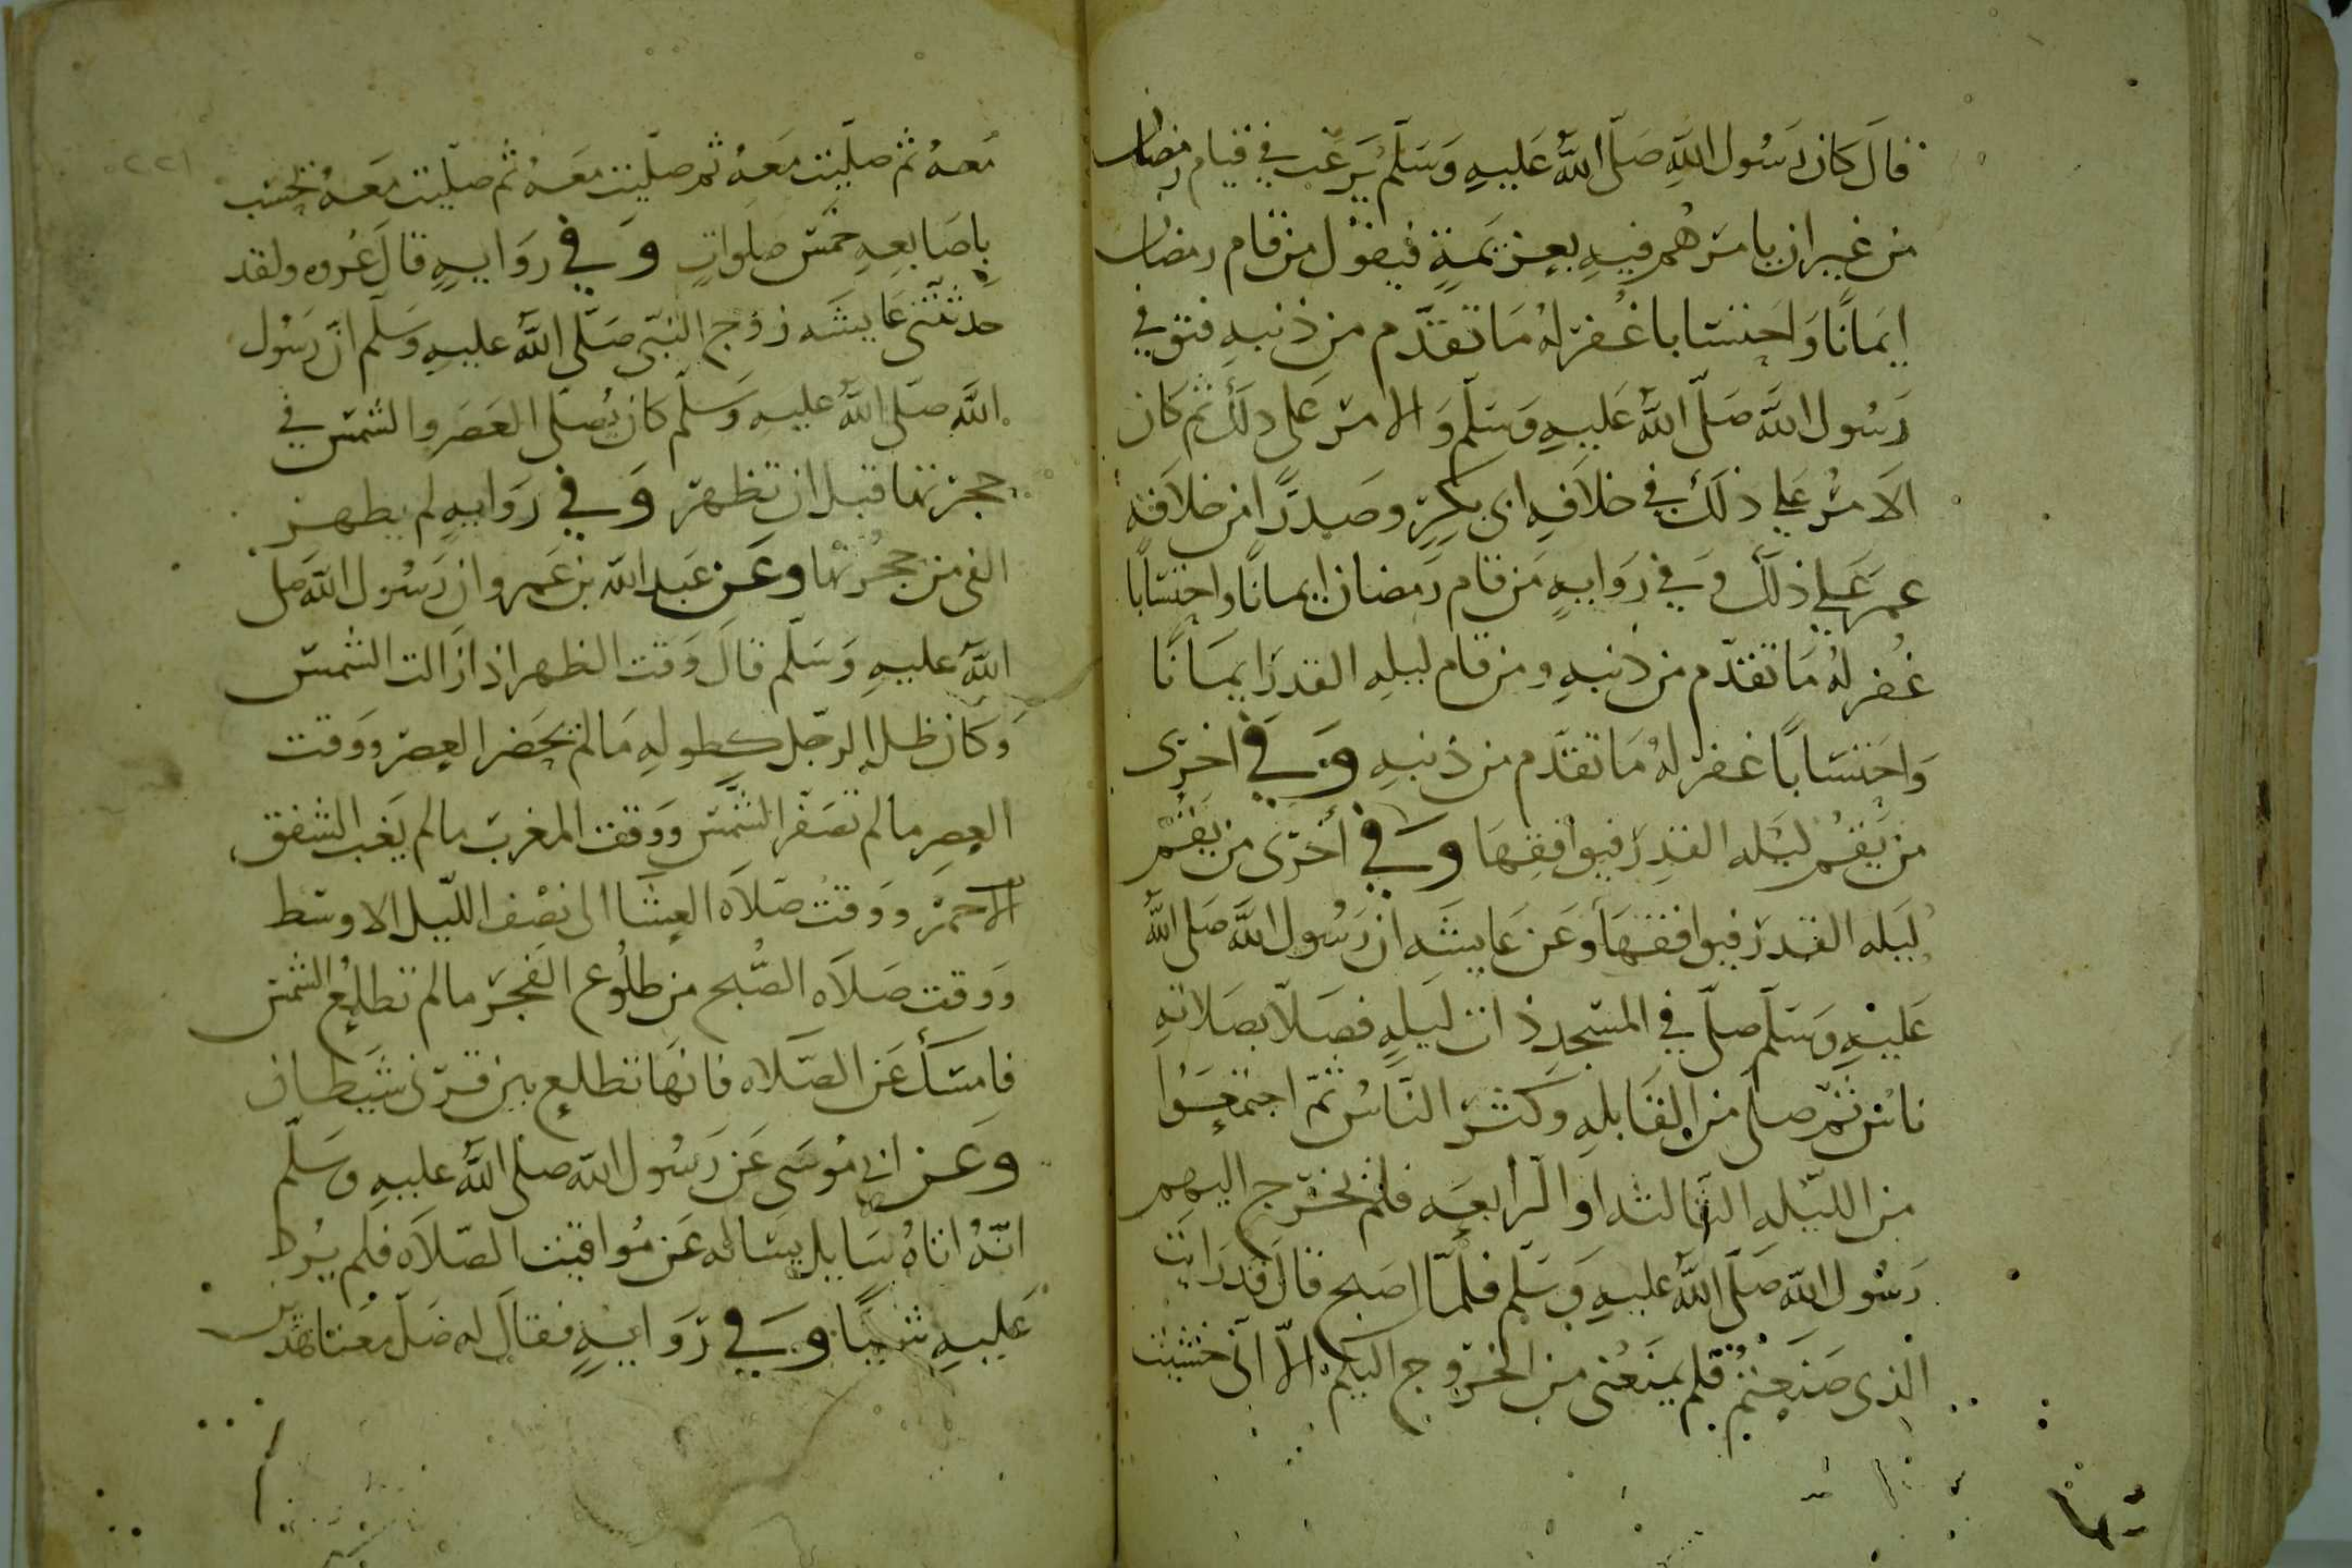 قال كان رسول الله صلى الله عليه وسلم يرغب في قيام رمضان
من غير ان يامرهم فيه بعزيمة فيقول من قام رمضان
ايمانا واحتسابا غفر له ما تقدم من ذنبه فتوفي
رسول الله صلى الله عليه وسلم والامر على ذلك ثم كان
الامر على ذلك في خلافه ابي بكر وصدرا من خلافة
عمر على ذلك وفي روايه من قام رمضان ايمانا واحتسابا
غفر له ما تقدم من ذنبه ومن قام ليله القدر ايمانا
واحتسابا غفر له ما تقدم من ذنبه وفي اخرى
من يقم ليله القدر فيوافقها وفي أخرى من يقم
ليله القدر فيوافقها وعن عايشه ان رسول الله صلى الله
عليه وسلم صلى في المسجد ذات ليله فصلا بصلاته
ناس ثم صلى من القابله وكثر الناس ثم اجتمعوا
من الليله الثالثه او الرابعه فلم يخرج اليهم
رسول الله صلى الله عليه وسلم فلما اصبح قال قد رايت
الذى صنعتم فلم يمنعني من الخروج اليكم الا انى خشيت
٢٢١
معه ثم صليت معه ثم صليت معه ثم صليت معه تحسب
باصابعه خمس صلوات وفي روايه قال عروه ولقد
حدثتني عايشه زوج النبي صلى الله عليه وسلم ان رسول
الله صلى الله عليه وسلم كان يصلى العصر والشمس في
حجرتها قبل ان تظهر وفي روايه لم يظهر
الفى من حجرتها وعن عبد الله بن عمرو ان رسول الله صلى
الله عليه وسلم قال وقت الظهر اذا زالت الشمس
وكان ظل الرجل كطوله ما لم يحضر العصر ووقت
العصر ما لم تصفر الشمس ووقت المغرب ما لم يغب الشفق
الاحمر ووقت صلاه العشا الى نصف الليل الاوسط
ووقت صلاه الصبح من طلوع الفجر ما لم تطلع الشمس
فامسك عن الصلاه فانها تطلع بين قرنى شيطان
وعن ابي موسى عن رسول الله صلى الله عليه وسلم
انه اتاه سايل يساله عن مواقيت الصلاه فلم يرد
عليه شيا وفي روايه فقال له صل معنا هذين